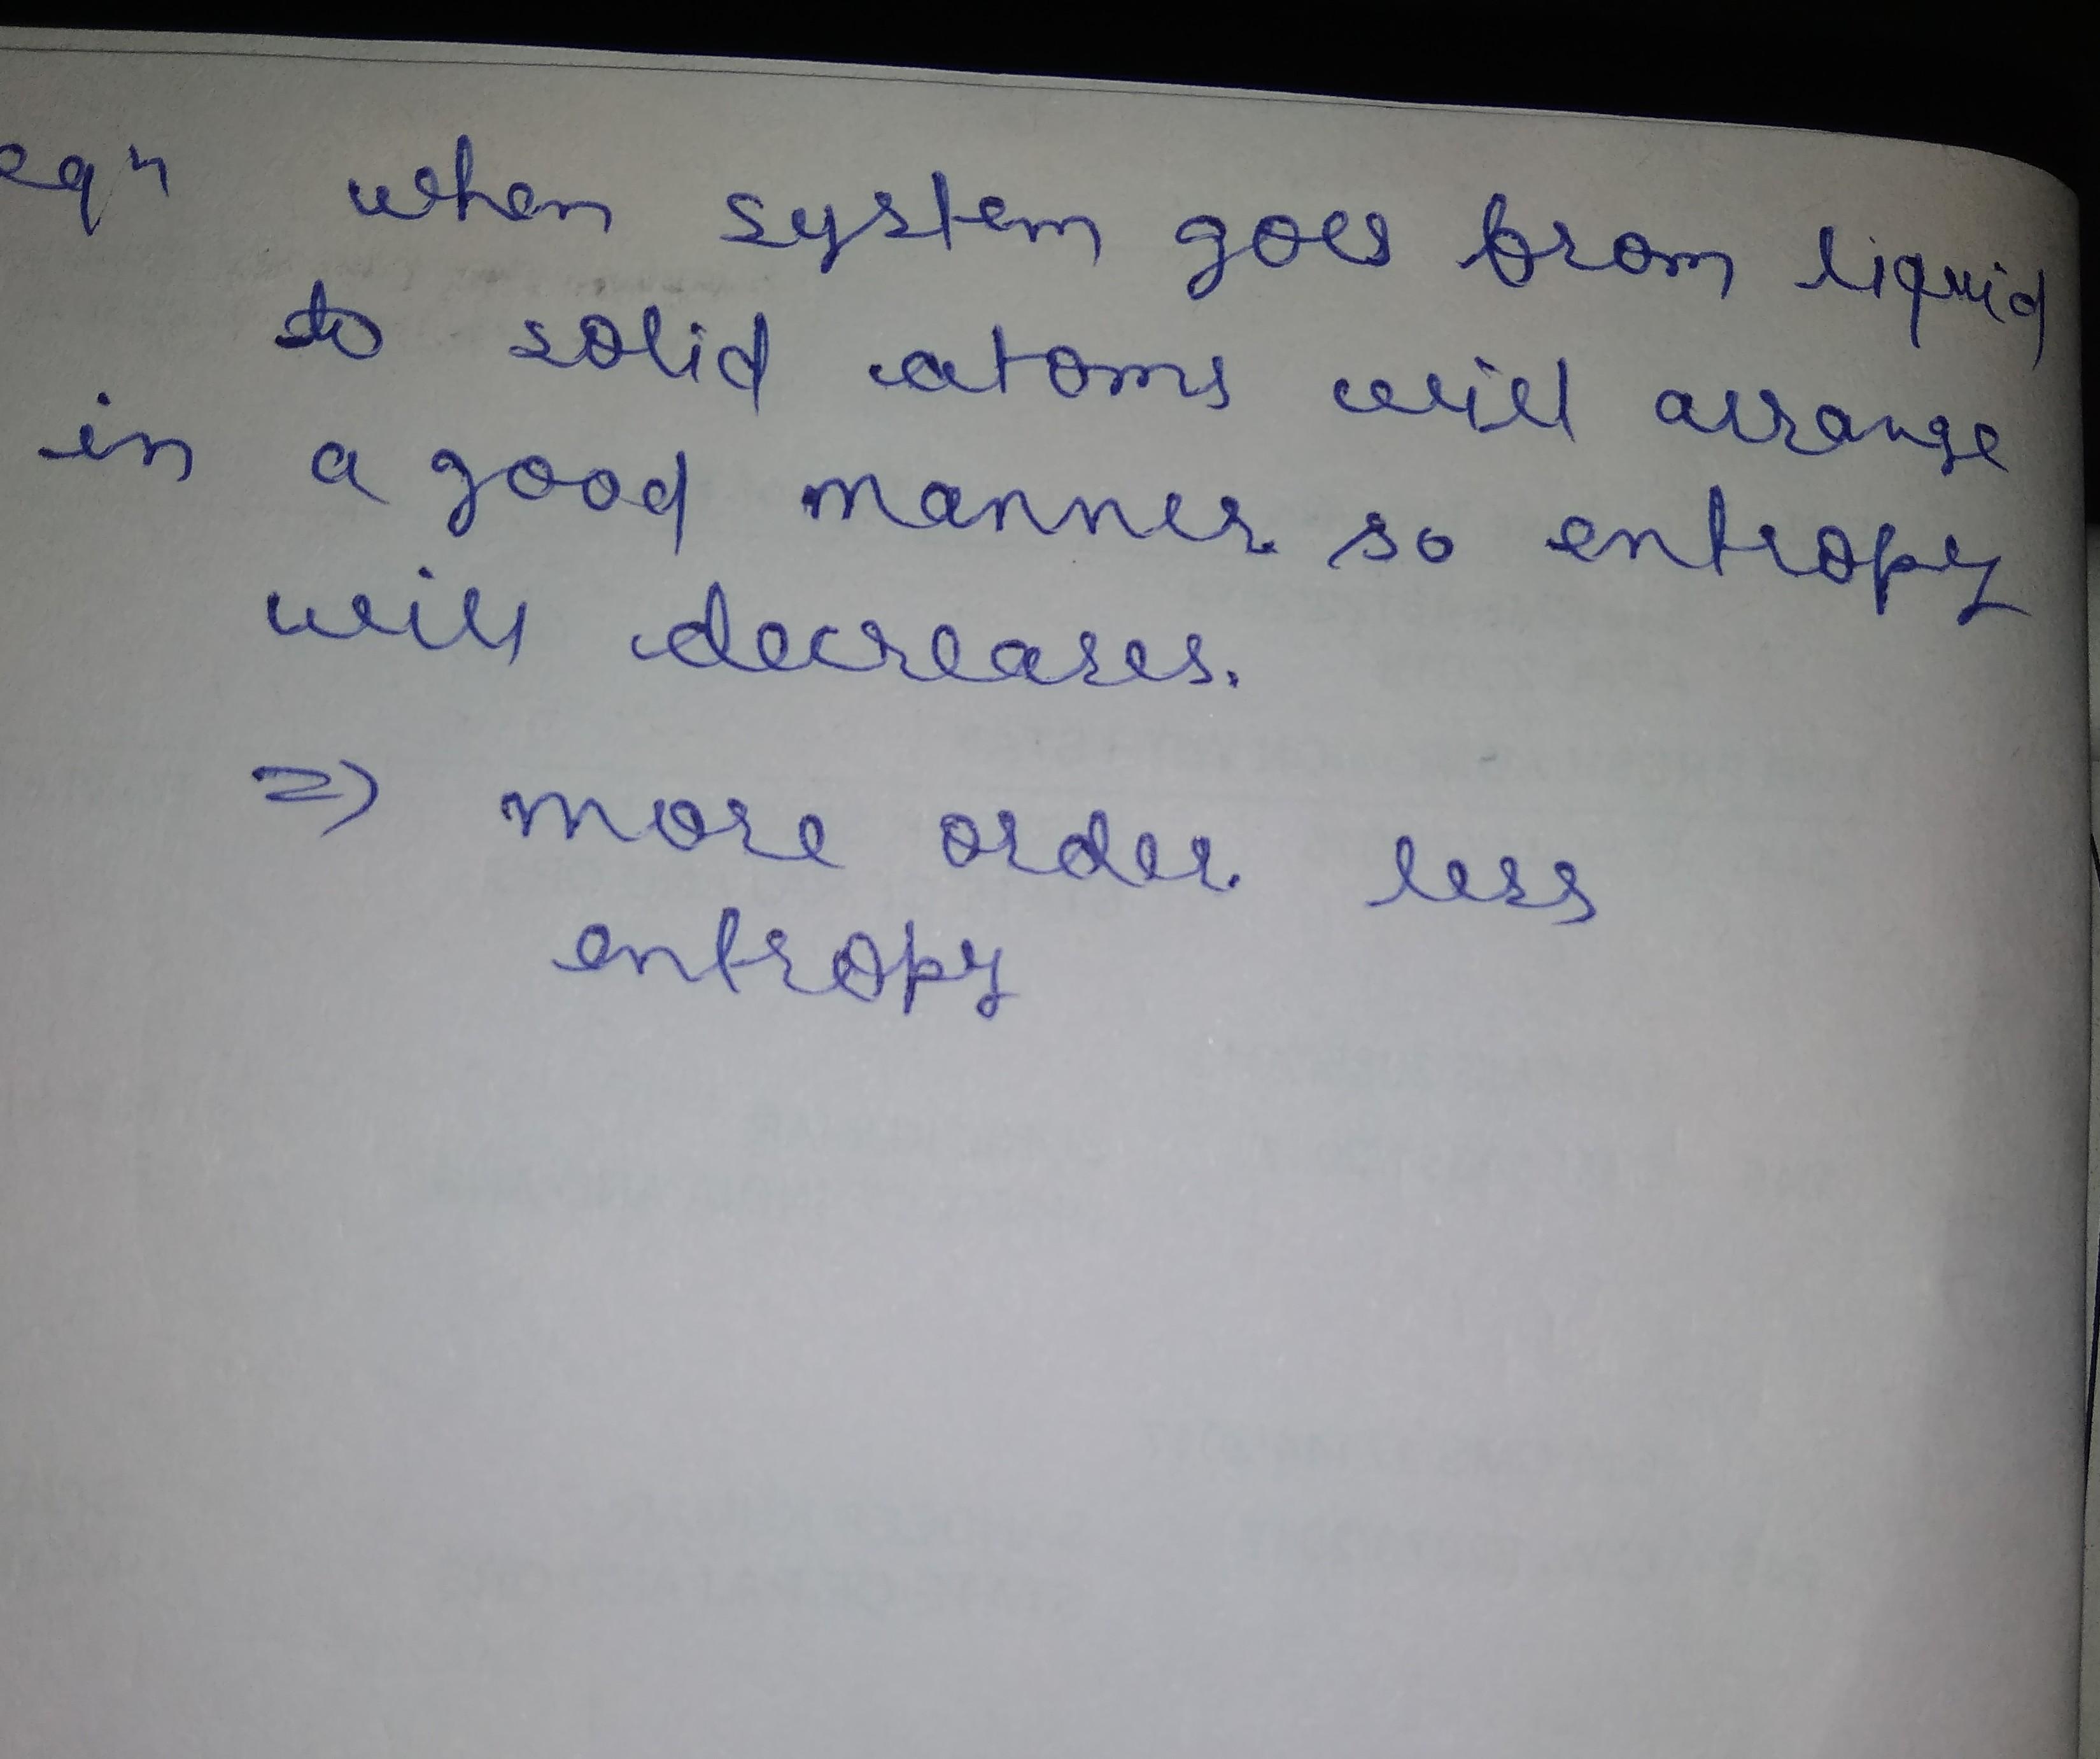 eqn when system goes from liquid
to solid atoms will arrange
in a good manner so entropy
will decreases.
=> more order less
entropy